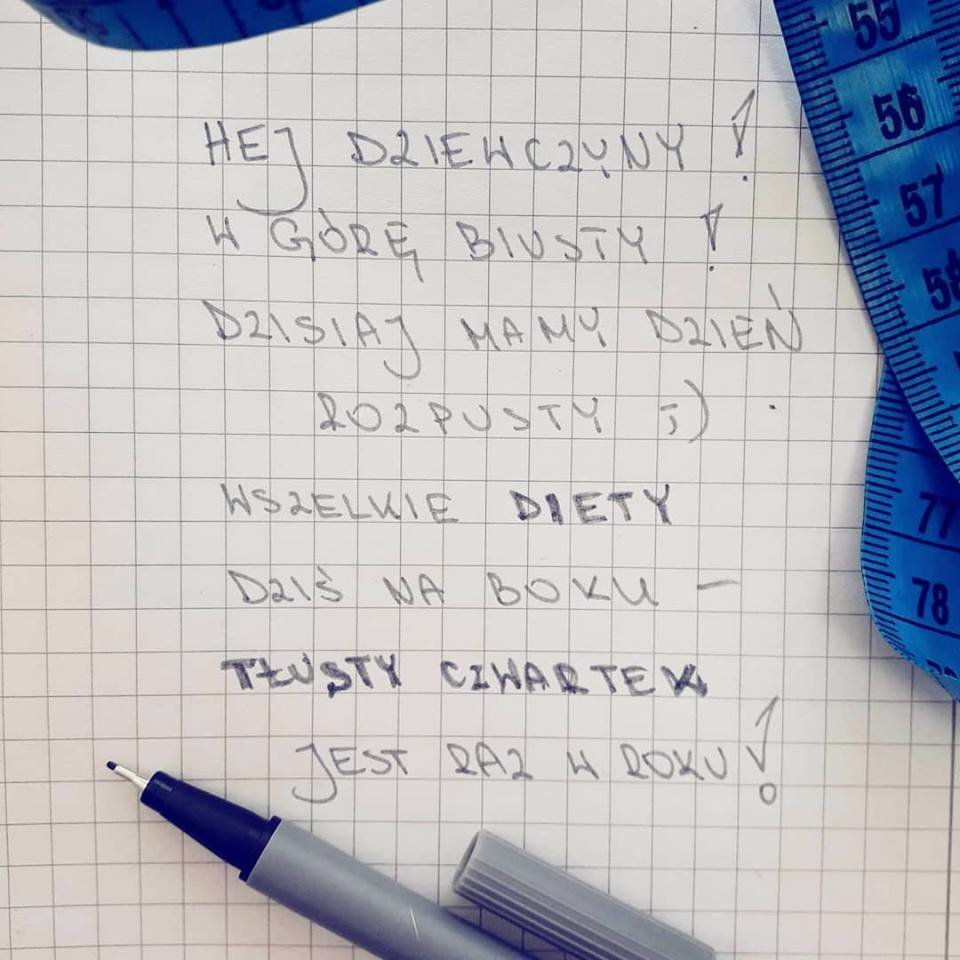 HEJ DZIEWCZYNY!
W GÓRĘ BIUSTY!
DZISIAJ MAMY DZIEŃ
ROZPUSTY ;)
WSZELKIE DIETY
DZIŚ NA BOKU –
TŁUSTY CZWARTEK
JEST RAZ W ROKU!
55
56
57
58
77
78